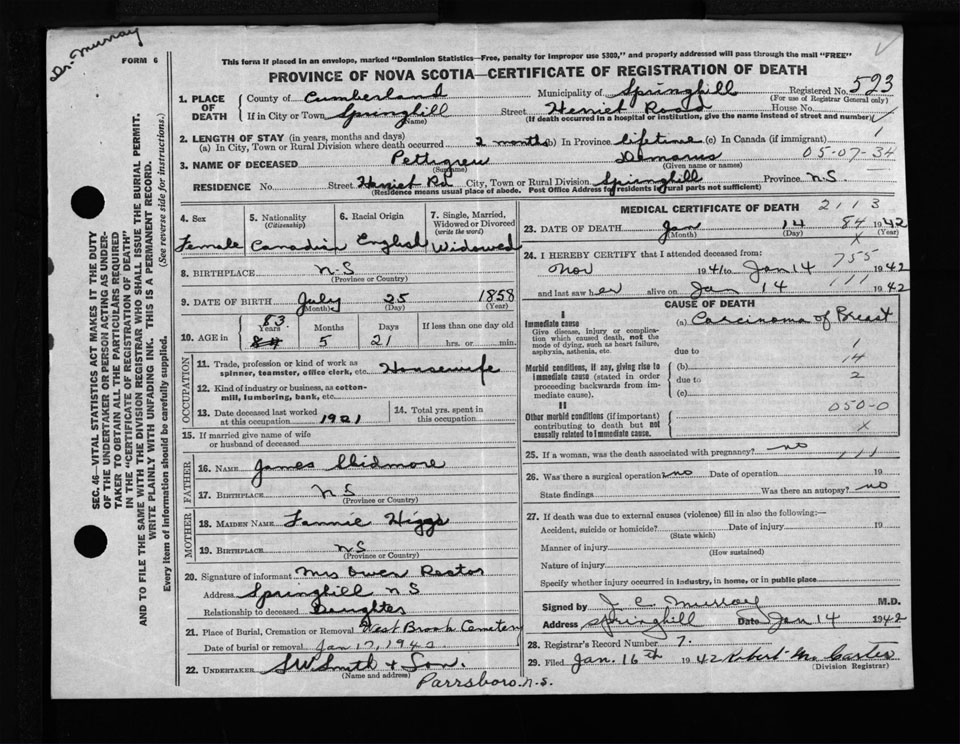 Dr. Murray
FORM 6
This form if placed in an envelope, marked "Dominion Statistics—Free, penalty for improper use $300," and properly addressed will pass through the mail "FREE"
PROVINCE OF NOVA SCOTIA—CERTIFICATE OF REGISTRATION OF DEATH
SEC. 46—VITAL STATISTICS ACT MAKES IT THE DUTY
OF THE UNDERTAKER OR PERSON ACTING AS UNDER-
TAKER TO OBTAIN ALL THE PARTICULARS REQUIRED
IN THE "CERTIFICATE OF REGISTRATION OF DEATH"
AND TO FILE THE SAME WITH THE DIVISION REGISTRAR WHO SHALL ISSUE THE BURIAL PERMIT.
WRITE PLAINLY WITH UNFADING INK. THIS IS A PERMANENT RECORD.
Every item of information should be carefully supplied. (See reverse side for instructions.)
1. PLACE OF DEATH County of Cumberland Municipality of Springhill Registered No. 523
(For use of Registrar General only)
If in City or Town Springhill Street Herriet Road House No.
(Name) (If death occurred in a hospital or institution, give the name instead of street and number)
1
2. LENGTH OF STAY (in years, months and days)
(a) In City, Town or Rural Division where death occurred 2 months (b) In Province lifetime (c) In Canada (if immigrant)
3. NAME OF DECEASED Pettigrew Damaris 05-07-34
(Surname) (Given name or names)
RESIDENCE No. Street Herriet Rd City, Town or Rural Division Springhill Province N.S.
(Residence means usual place of abode. Post Office Address for residents in rural parts not sufficient)
4. Sex Female
5. Nationality (Citizenship) Canadian
6. Racial Origin English
7. Single, Married, Widowed or Divorced (write the word) Widowed
8. BIRTHPLACE N.S
(Province or Country)
9. DATE OF BIRTH July 25 1858
(Month) (Day) (Year)
10. AGE in 83 84 Years 5 Months 21 Days If less than one day old hrs. or min.
OCCUPATION
11. Trade, profession or kind of work as spinner, teamster, office clerk, etc. Housewife
12. Kind of industry or business, as cotton-mill, lumbering, bank, etc.
13. Date deceased last worked at this occupation 1921
14. Total yrs. spent in this occupation
15. If married give name of wife or husband of deceased
FATHER
16. NAME James Skidmore
17. BIRTHPLACE N S
(Province or Country)
MOTHER
18. MAIDEN NAME Fannie Higgs
19. BIRTHPLACE N S
(Province or Country)
20. Signature of informant Mrs Owen Rector
Address Springhill N S
Relationship to deceased Daughter
21. Place of Burial, Cremation or Removal West Brook Cemetery
Date of burial or removal Jan 17, 1942
22. UNDERTAKER SW Smith & Son.
(Name and address)
Parrsboro. N.S.
MEDICAL CERTIFICATE OF DEATH 2113
23. DATE OF DEATH Jan 14 84 1942
(Month) (Day) (Year)
x
24. I HEREBY CERTIFY that I attended deceased from: 755
Nov 1941 to Jan 14 1942
111
and last saw her alive on Jan 14 1942
CAUSE OF DEATH
I
Immediate cause
Give disease, injury or complication which caused death, not the mode of dying, such as heart failure, asphyxia, asthenia, etc.
(a) Carcinoma of Breast
1
due to
14
Morbid conditions, if any, giving rise to immediate cause (stated in order proceeding backwards from immediate cause).
(b)
due to 2
(c)
II
050-0
Other morbid conditions (if important) contributing to death but not causally related to immediate cause.
x
25. If a woman, was the death associated with pregnancy? no
111
26. Was there a surgical operation? no Date of operation 19
State findings Was there an autopsy? no
27. If death was due to external causes (violence) fill in also the following:—
Accident, suicide or homicide? Date of injury 19
(State which)
Manner of injury
(How sustained)
Nature of injury
Specify whether injury occurred in industry, in home, or in public place
Signed by J. C. Murray M.D.
Address Springhill Date Jan 14 1942
28. Registrar's Record Number 7.
29. Filed Jan. 16th 1942 Robert Mc Carter
(Division Registrar)